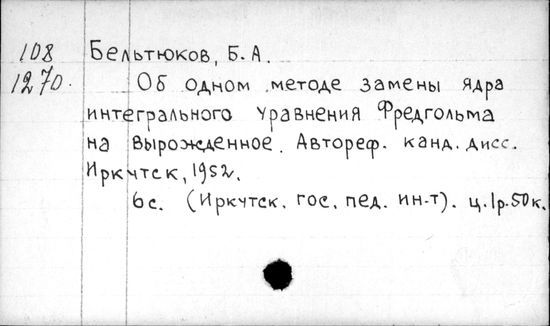 108 Бельтюков, Б. А.
1270. Об одном методе замены ядра
интегрального уравнения Фредгольма
на вырожденное. Автореф. канд. дисс.
Иркутск, 1952.
6с. (Иркутск. гос. пед. ин-т). ц. 1р. 50к.